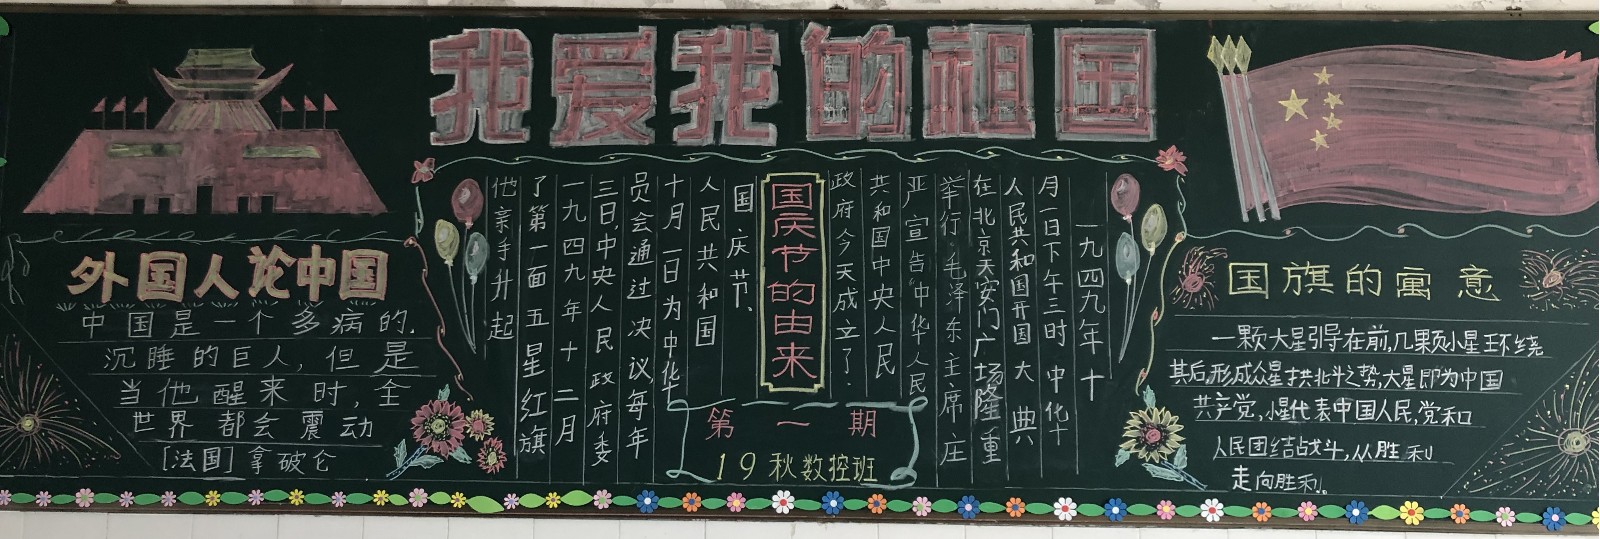 我爱我的祖国
外国人论中国
中国是一个多病的.
沉睡的巨人,但是
当他醒来时,全
世界都会震动
[法国]拿破仑
国庆节的由来
一九四九年十
月一日下午三时中华
人民共和国开国大典
在北京天安门广场隆重
举行,毛泽东主席庄
严宣告"中华人民
共和国中央人民
政府今天成立了.
国庆节、
人民共和国
十月一日为中华
员会通过决议,每年
三日,中央人民政府委
一九四九年十二月
了第一面五星红旗
他亲手升起
第一期
19秋数控班
国旗的寓意
一颗大星引导在前,几颗小星环绕
其后,形成众星拱北斗之势,大星即为中国
共产党,小星代表中国人民,党和
人民团结战斗,从胜利
走向胜利。